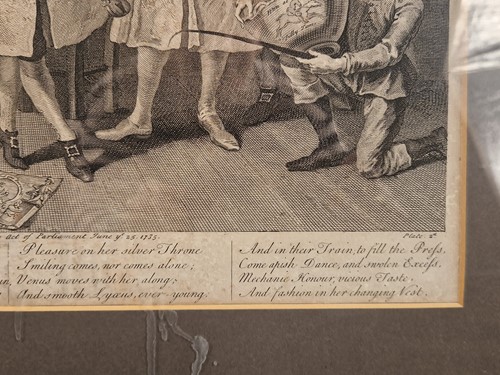 Act of Parliament June yᵉ 25. 1735.
Plate 2ᵈ
Pleasure on her silver Throne
Smiling comes, nor comes alone;
Venus moves with her along;
And smooth Lyæus, ever-young.
And in their Train, to fill the Preſs,
Come apish Dance, and swolen Exceſs,
Mechanic Honour, vicious Taste,
And fashion in her changing Vest.